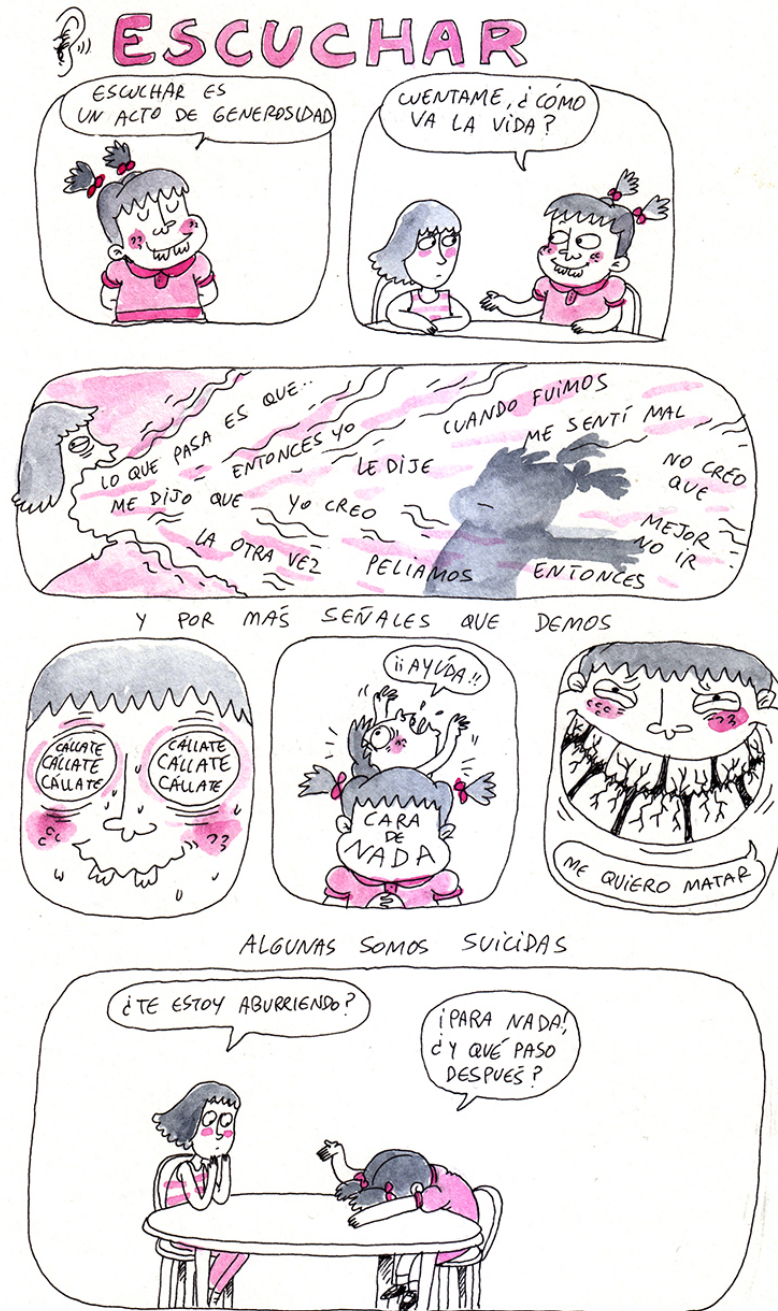 ESCUCHAR
ESCUCHAR ES
UN ACTO DE GENEROSIDAD
CUENTAME, ¿CÓMO
VA LA VIDA?
LO QUE PASA ES QUE..
ENTONCES YO
CUANDO FUIMOS
ME SENTÍ MAL
ME DIJO QUE
YO CREO
LE DIJE
NO CREO
QUE
LA OTRA VEZ
PELIAMOS
ENTONCES
MEJOR
NO IR
Y POR MÁS SEÑALES QUE DEMOS
CÁLLATE
CÁLLATE
CÁLLATE
CÁLLATE
CÁLLATE
CÁLLATE
¡¡AYÚDA!!
CARA
DE
NADA
ME QUIERO MATAR
ALGUNAS SOMOS SUICIDAS
¿TE ESTOY ABURRIENDO?
¡PARA NADA!,
¿Y QUÉ PASO
DESPUÉS?